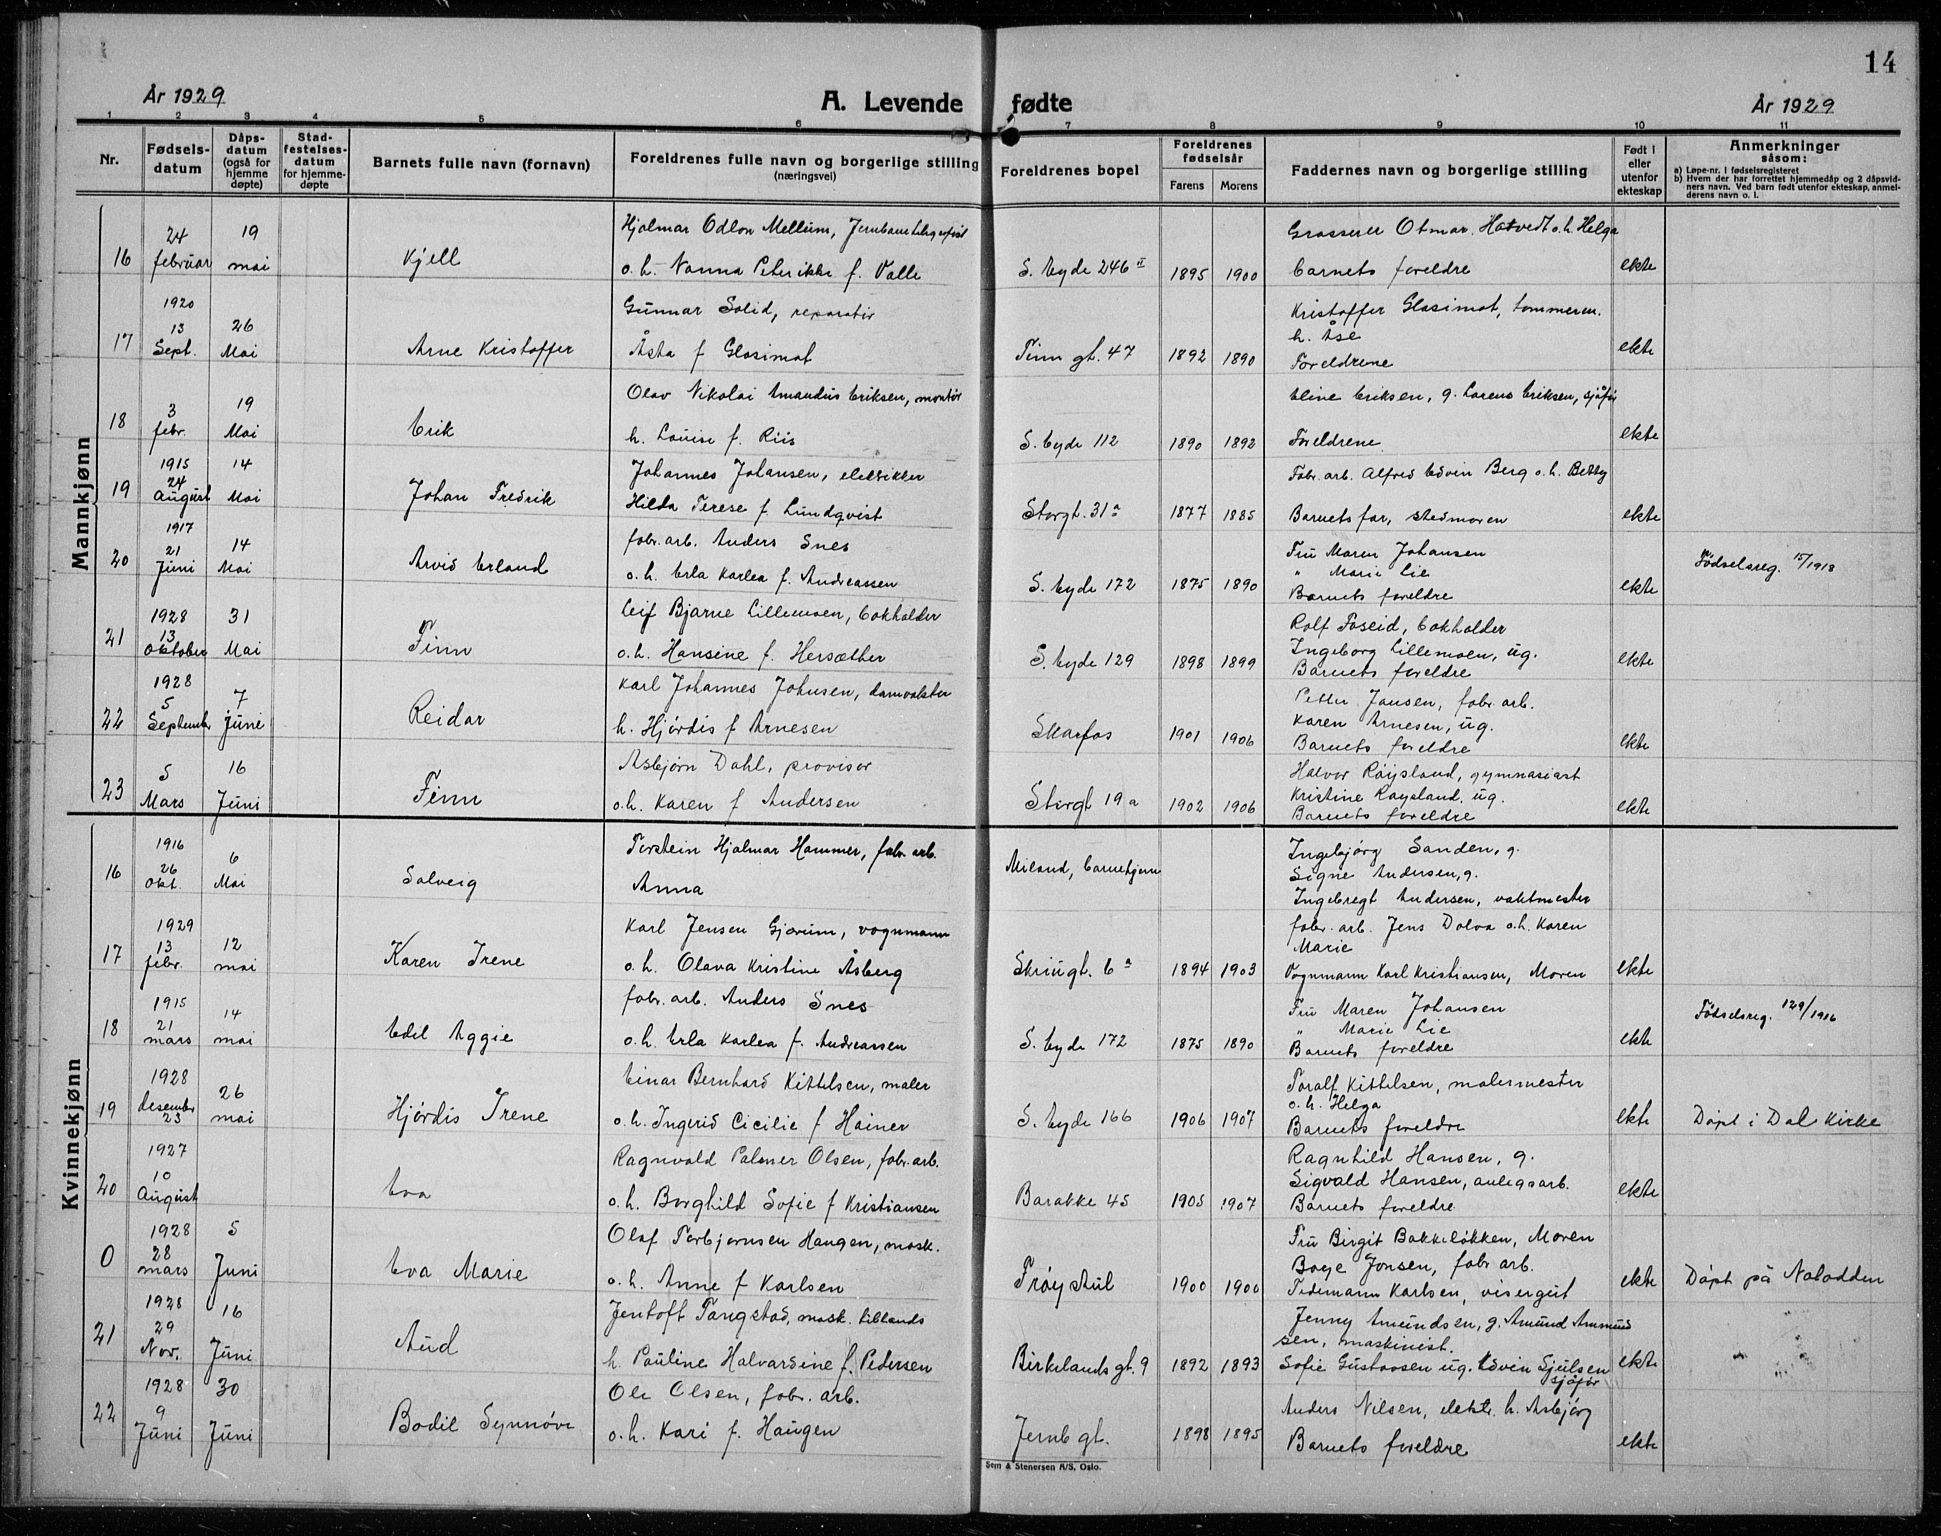 14
År 1929
A. Levende fødte
År 1929
1 2 3 4 5 6 7 8 9 10 11
Nr.
Fødsels-
datum
Dåps-
datum
(også for
hjemme
døpte)
Stad-
festelses-
datum
for hjemme-
døpte
Barnets fulle navn (fornavn)
Foreldrenes fulle navn og borgerlige stilling
(næringsvei)
Foreldrenes bopel
Foreldrenes
fødselsår
Farens Morens
Faddernes navn og borgerlige stilling
Født i
eller
utenfor
ekteskap
Anmerkninger
såsom:
a) Løpe-nr. i fødselsregisteret
b) Hvem der har forrettet hjemmedåp og 2 dåpsvid-
ners navn. Ved barn født utenfor ekteskap, anmel-
derens navn o. l.
Mannkjønn
16 24 februar 19 mai Kjell
Hjalmar Odlon Mellum,
o.h. Nanna Peterikke f. Valle
S. Eyde 246 II 1895 1900
Grosserer Otmar Hotvedt o.h. Helga
barnets foreldre
ekte
17 1920 13 Sept. 26 Mai Arne Kristoffer
Gunnar Solid, reparatør
Åsta f Glosimot
Tinn gt. 47 1892 1890
Kristoffer Glosimot, tømmerm.
h. Åse
Foreldrene
ekte
18 3 febr. 19 Mai Erik
Olav Nikolai Amandus Eriksen, montør
h. Louise f. Riis
S. Eyde 112 1890 1892
Eline Eriksen, g. Lorens Eriksen, sjåfør
Foreldrene
ekte
19 1915 24 August 14 Mai Johan Fredrik
Johannes Johansen, elektriker
Hilda Terese f. Lundqvist
Storgt. 31 a 1877 1885
Fabr. arb. Alfred Edvin Berg o.h. Betty
Barnets far, stedmoren
ekte
20 1917 21 Juni 14 Mai Arvid Erland
fabr. arb. Anders Snes
o.h. Erla Karlea f. Andreassen
S. Eyde 172 1875 1890
Fru Maren Johansen
" Marie Lie
Barnets foreldre
ekte
Fødselsreg. 15/1918
21 1928 13 Oktober 31 Mai Finn
Leif Bjarne Lillemoen, bokholder
o.h. Hansine f. Hersæther
S. Eyde 129 1898 1899
Rolf Foseid, bokholder
Ingeborg Lillemoen, ug.
Barnets foreldre
ekte
22 1928 5 September 7 juni Reidar
Karl Johannes Johnsen, damvokter
h. Hjørdis f Arnesen
Skarfos 1901 1906
Petter Jansen, fabr. arb.
Karen Arnesen, ug.
Barnets foreldre
ekte
23 5 Mars 16 Juni Finn
Asbjørn Dahl, provisor
o.h. Karen f Andersen
Storgt 19 a 1902 1906
Halvor Røysland, gymnasiast
Kristine Røysland, ug.
Barnets foreldre
ekte
Kvinnekjønn
16 1916 26 Okt. 6 Mai Solveig
Torstein Hjalmar Hammer, fabr. arb.
Anna
Miland, barnehjem
Ingebjørg Sanden, g.
Signe Andersen, g.
Ingebregt Andersen, vaktmester
17 1929 13 febr. 12 mai Karen Irene
Karl Jensen Gjerum, vognmann
o.h. Olava Kristine Åsberg
Skriugt. 6 a 1894 1903
fabr. arb. Jens Dolva o.h. Karen
Marie
Vognmann Karl Kristiansen, Moren
ekte
18 1915 21 mars 14 mai Edil Aggie
fabr. arb. Anders Snes
o.h. Erla Karlea f. Andreassen
S. Eyde 172 1875 1890
Fru Maren Johansen
" Marie Lie
Barnets foreldre
ekte
Fødselsreg. 129/1916
19 1928 desember 23 26 mai Hjørdis Irene
Einar Bernhard Kittelsen, maler
o.h. Ingerid Cicilie f Hainer
S. Eyde 166 1906 1907
Toralf Kittelsen, malermester
o.h. Helga
Barnets foreldre
ekte
Døpt i Dal Kirke
20 1927 10 August Eva
Ragnvald Palmer Olsen, fabr. arb.
o.h. Borghild Sofie f Kristiansen
Barakke 45 1905 1907
Ragnhild Hansen, g.
Sigvald Hansen, anlegsarb.
Barnets foreldre
ekte
0 1928 28 mars 5 Juni Eva Marie
Olaf Torbjørnsen Haugen, mask.
o.h. Anne f Karlsen
Frøystul 1900 1900
Fru Birgit Bakkeløkken, Moren
Boye Jonsen, fabr arb.
Tidemann Karlsen, visergut
ekte
Døpt på Notodden
21 1928 29 Nov. 16 Juni Aud
Jentoft Tangstad, mask.
h. Pauline Halvarsine f. Pedersen
Birkelands gt. 9 1892 1893
Jenny Amundsen, g. Amund Ammund
sen, maskinist.
Sofie Gustavsen ug. Edvin Sjulsen
sjåfør
ekte
22 1928 9 Juni 30 Juni Bodil Synnøve
Ole Olsen, fabr. arb.
o.h. Kari f. Haugen
Jernb gt. 1898 1895
Anders Nilsen, elektr. h. Asbjørg
Barnets foreldre
ekte
Sem & Stenersen A/S, Oslo.